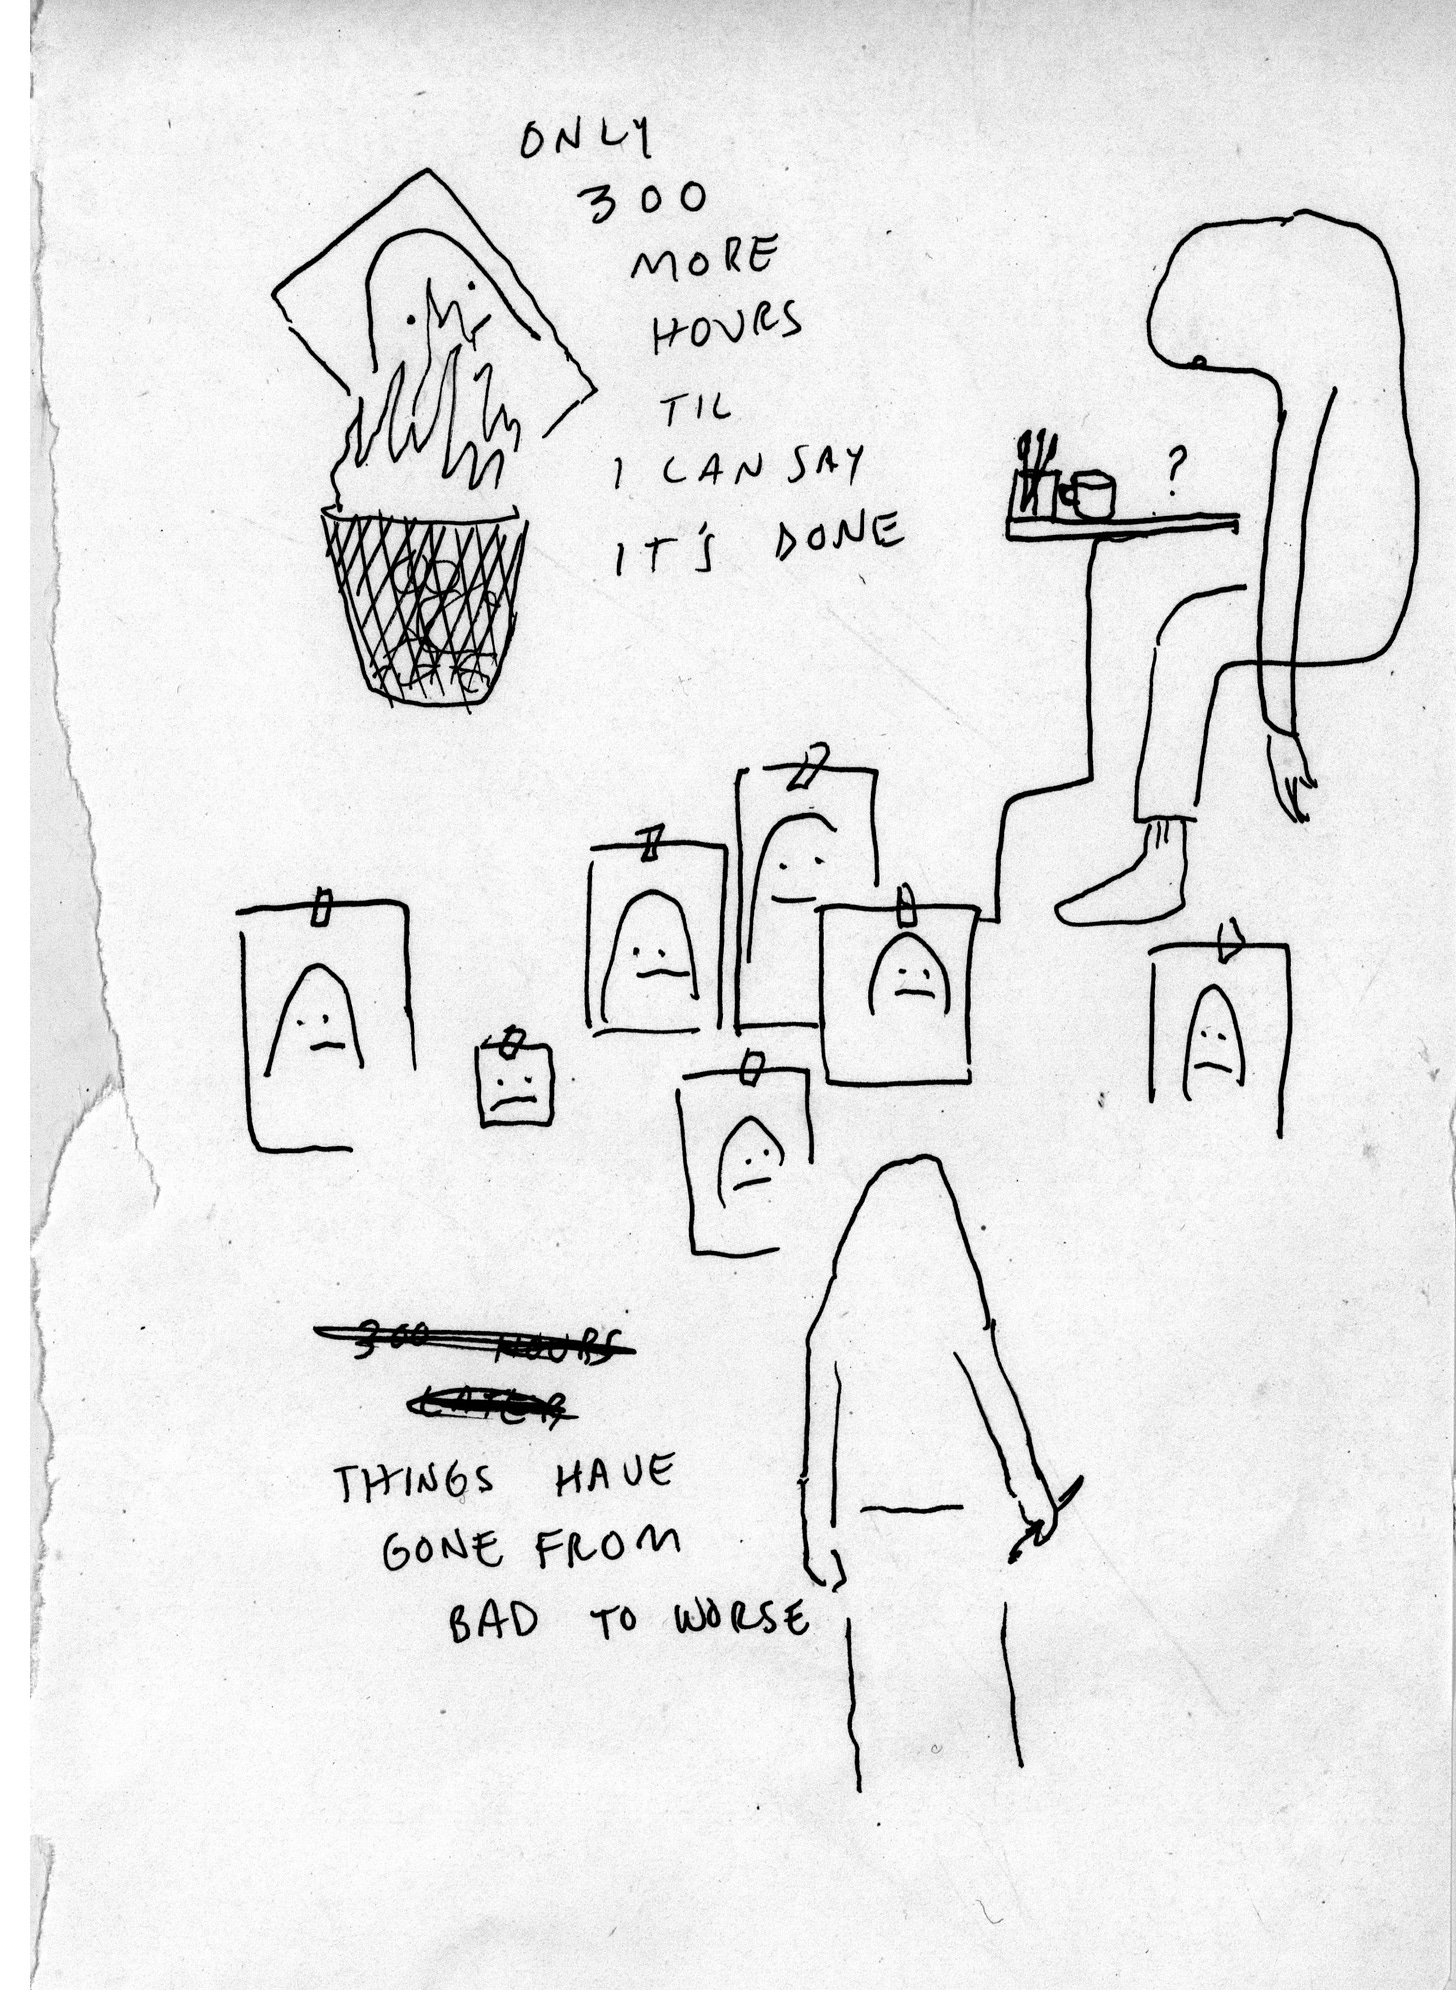 ONLY
300
MORE
HOURS
TIL
I CAN SAY
IT'S DONE
?
300 HOURS
LATER
THINGS HAVE
GONE FROM
BAD TO WORSE